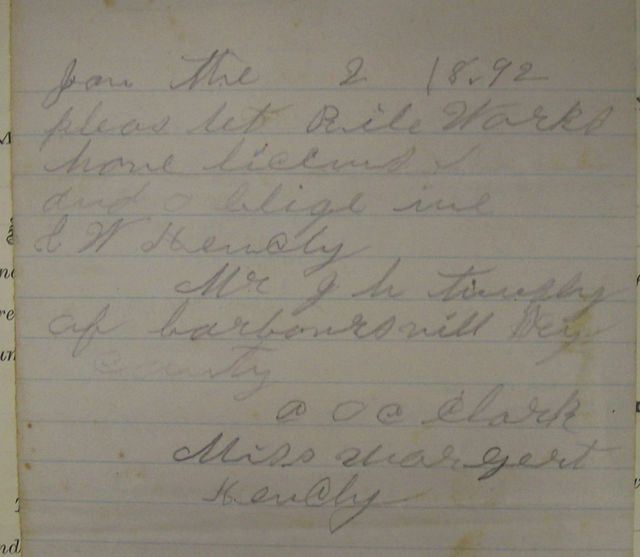 Jan the 2 18.92
pleas let Rile Works
have licens
and oblige me
E W Hendly
Mr J h
of barboursvill Ky
county
a o c Clark
Miss Margert
Hendly